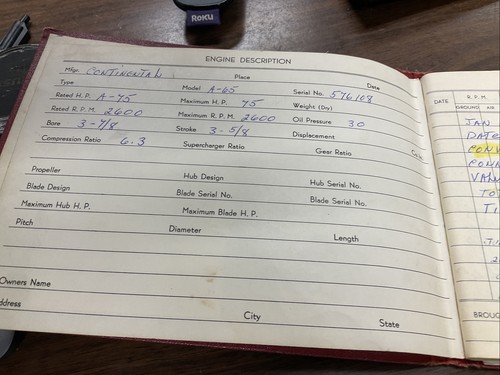 Roku
ENGINE DESCRIPTION
Mfgr. CONTINENTAL Place Date
Type Model A-65 Serial No. 576108
Rated H. P. A-75 Maximum H. P. 75 Weight (Dry)
Rated R. P. M. 2600 Maximum R. P. M. 2600 Oil Pressure 30
Bore 3-7/8 Stroke 3-5/8 Displacement
Compression Ratio 6.3 Supercharger Ratio Gear Ratio
Propeller Hub Design Hub Serial No.
Blade Design Blade Serial No. Blade Serial No.
Maximum Hub H. P. Maximum Blade H. P.
Pitch Diameter Length
Owners Name
City State
DATE R. P. M.
GROUND AIR
JAN
DATE
CONV
CONN
BROUG